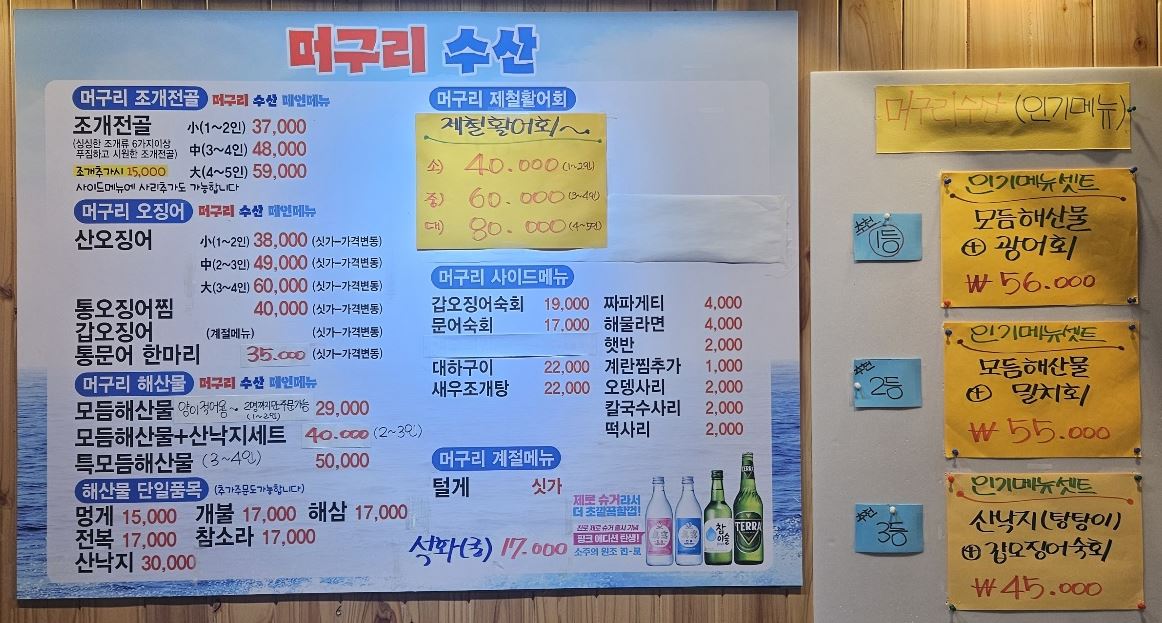 머구리 수산
머구리 조개전골 머구리 수산 메인메뉴
조개전골 小(1~2인) 37,000
(싱싱한 조개류 6가지이상
푸짐하고 시원한 조개전골)
中(3~4인) 48,000
조개추가시 15,000 大(4~5인) 59,000
사이드메뉴에 사리추가도 가능합니다
머구리 오징어 머구리 수산 메인메뉴
산오징어 小(1~2인) 38,000 (싯가-가격변동)
中(2~3인) 49,000 (싯가-가격변동)
大(3~4인) 60,000 (싯가-가격변동)
통오징어찜 40,000 (싯가-가격변동)
갑오징어 (계절메뉴) (싯가-가격변동)
통문어 한마리 35.000 (싯가-가격변동)
머구리 해산물 머구리 수산 메인메뉴
모듬해산물 양이적어용~ 2명까지만주문가능 (1~2인) 29,000
모듬해산물+산낙지세트 40.000 (2~3인)
특모듬해산물 (3~4인) 50,000
해산물 단일품목 (추가주문도가능합니다)
멍게 15,000 개불 17,000 해삼 17,000
전복 17,000 참소라 17,000
산낙지 30,000
머구리 제철활어회
제철활어회~
소) 40.000 (1~2인)
중) 60.000 (3~4인)
대) 80.000 (4~5인)
머구리 사이드메뉴
갑오징어숙회 19,000 짜파게티 4,000
문어숙회 17,000 해물라면 4,000
햇반 2,000
대하구이 22,000 계란찜추가 1,000
새우조개탕 22,000 오뎅사리 2,000
칼국수사리 2,000
떡사리 2,000
머구리 계절메뉴
털게 싯가
석화(굴) 17.000
제로 슈거라서
더 초깔끔할껄!
진로 제로 슈거 출시 기념
핑크 에디션 탄생!
소주의 원조 진-로
참이슬
TERRA
머구리수산 (인기메뉴)
추천 1등
인기메뉴셋트
모듬해산물
+ 광어회
₩ 56.000
추천 2등
인기메뉴셋트
모듬해산물
+ 밀치회
₩ 55.000
추천 3등
인기메뉴셋트
산낙지(탕탕이)
+ 갑오징어숙회
₩ 45.000